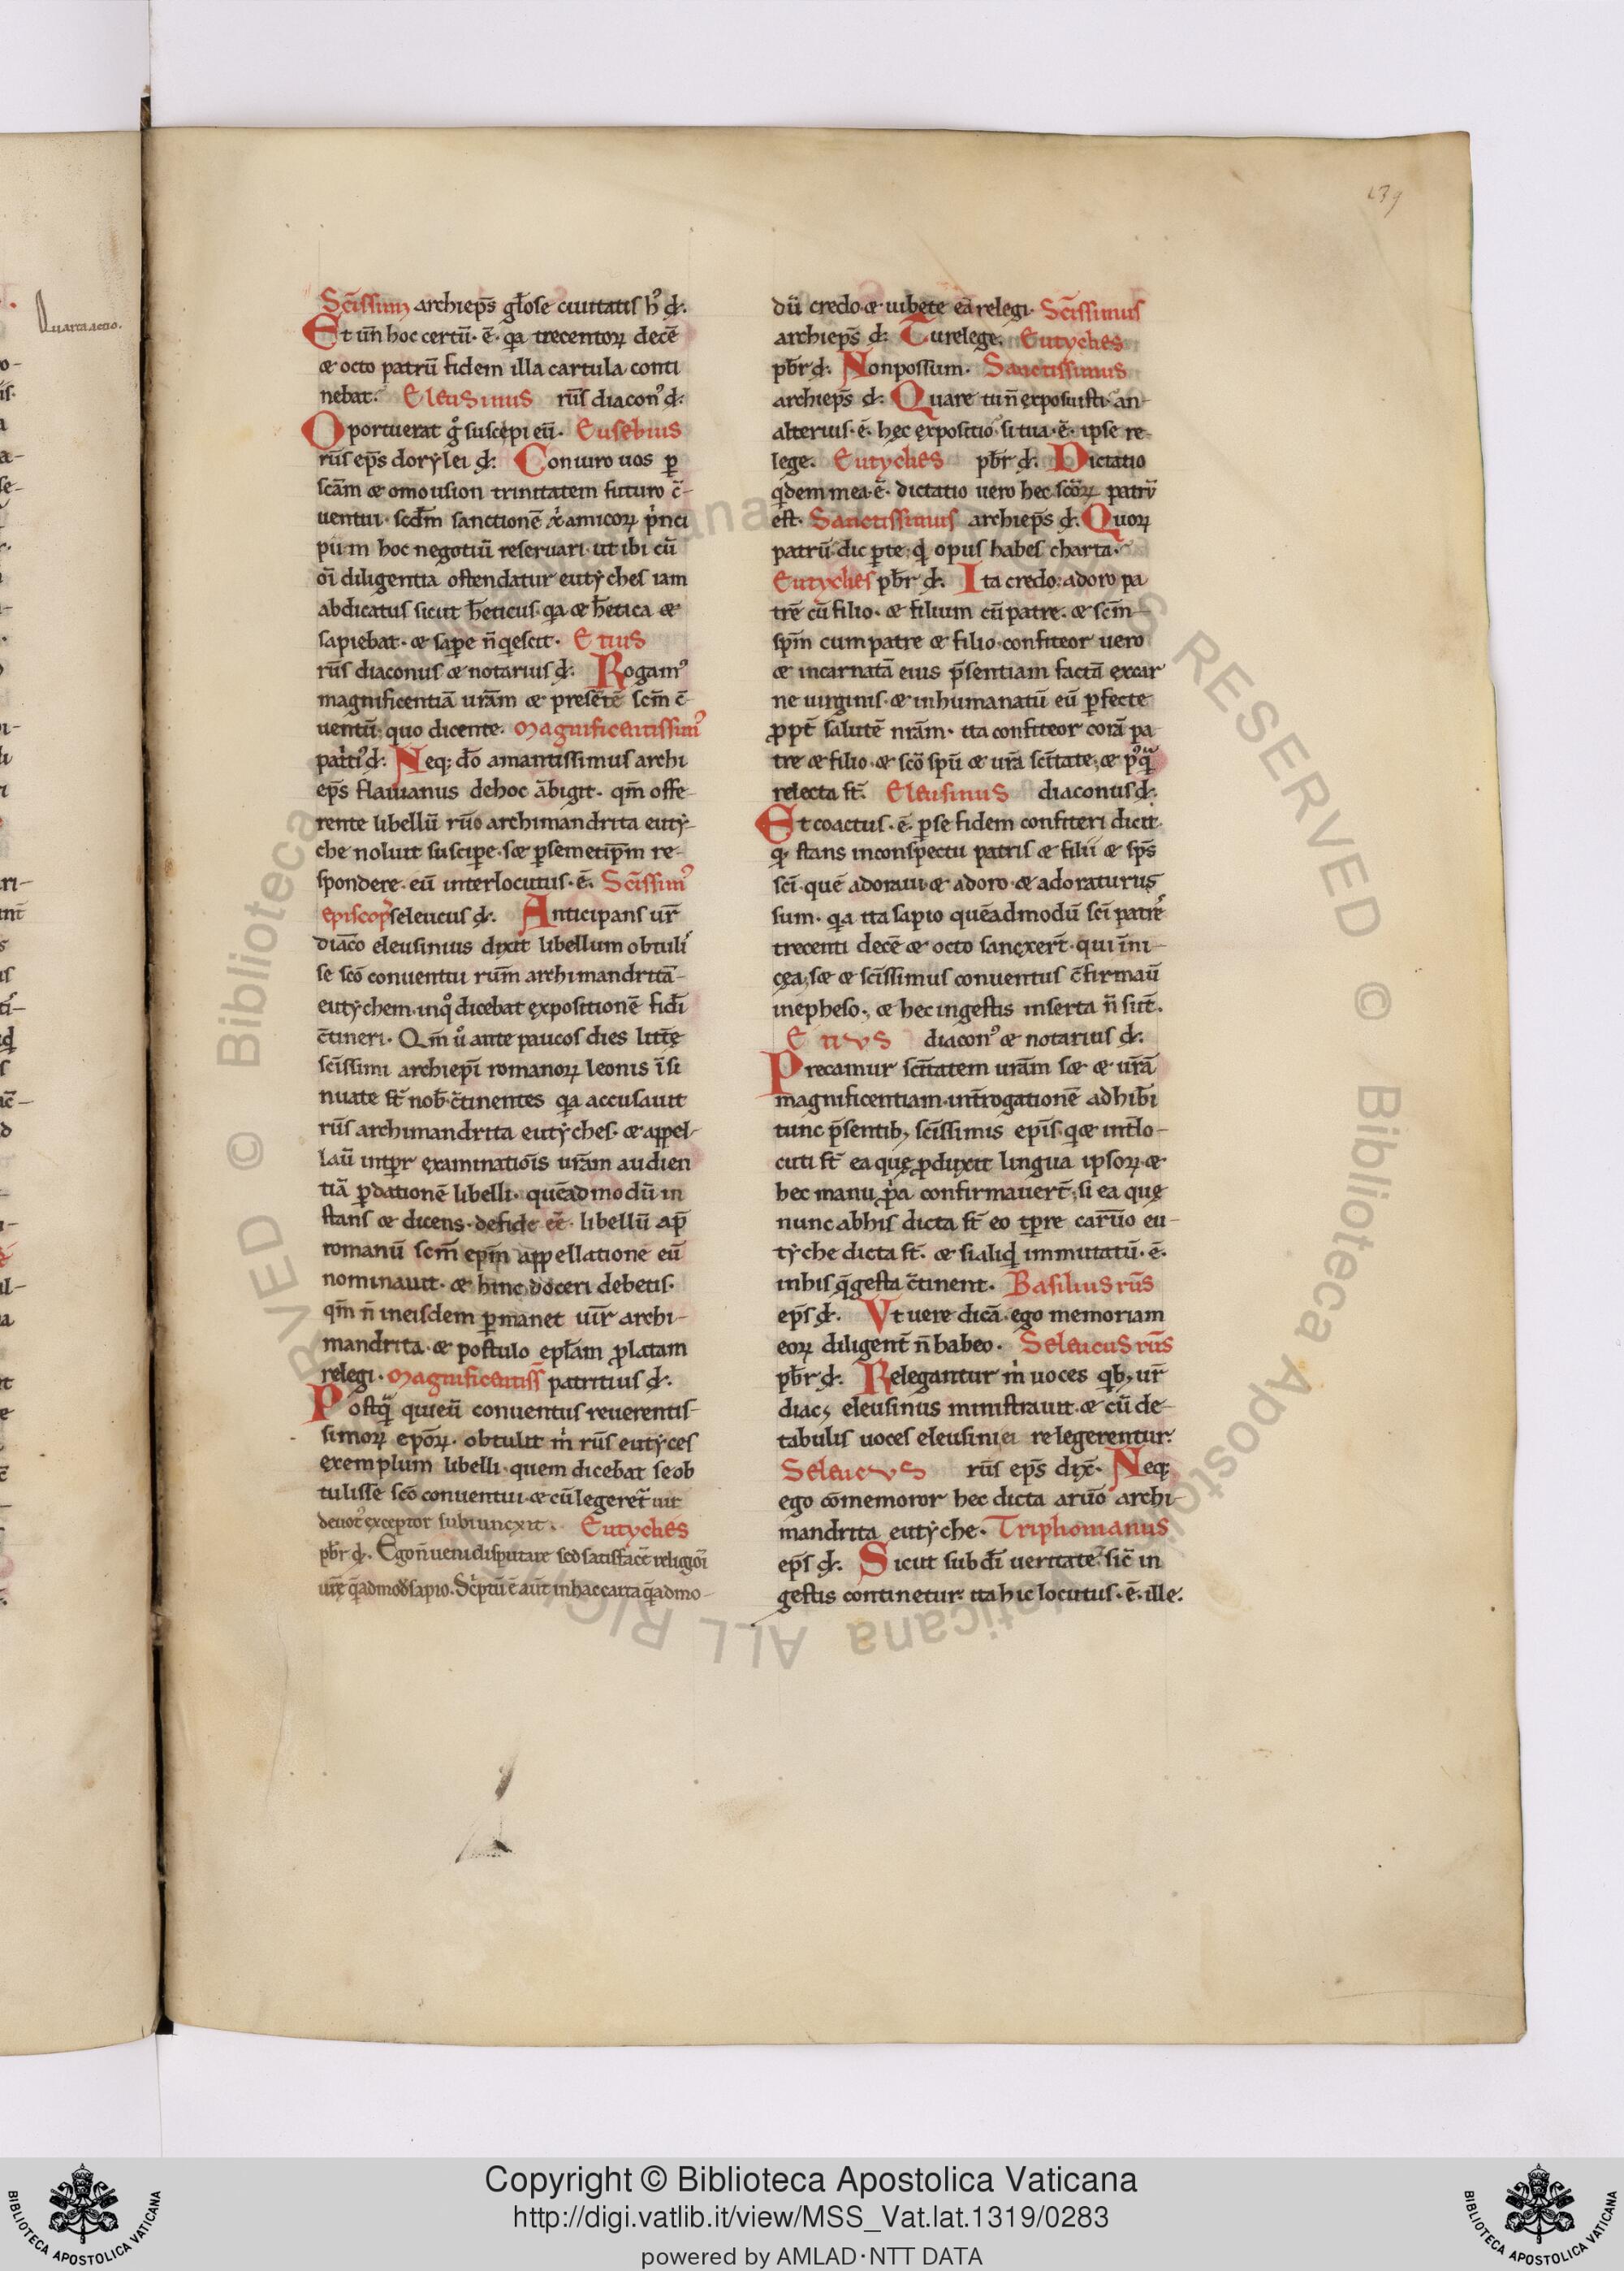 Quarta actio.
139
Sc̄issimꝰ archiep̄s gl̄ose ciuitatis hꝰ đ.
Et un̄ hoc certū· ē· qa trecentoꝝ decē
& octo patrū fidem illa cartula conti
nebat. Eleusinus rūs diaconꝰ đ.
Oportuerat g̊ suscepi eū. Eusebius
rūs ep̄s dorẏlei đ. Coniuro uos ꝑ
sc̄am & omousion trinitatem futuro c̄-
uentui· scd̄m sanctionē xp̄i amicoꝝ pͥnci
pum hoc negotiū reseruari· ut ibi cū
oī diligentia ostendatur eutẏches iam
abdicatus sicut h̄eticus· qa & h̄etica &
sapiebat· & saꝑe n̄ qescit· Etius
rūs diaconus & notarius đ. Rogamꝰ
magnificentiā urām & presētē scm̄ c̄-
uentū· quo dicente. Magnificentissimꝰ
patͥtiꝰ đ. Neq; dō amantissimus archi
ep̄s flauianus dehoc ābigit· qm̄ offe-
rente libellū rūo archimandrita eutẏ-
che noluit susciꝑe· s& ꝑsemetip̄m re-
spondere· eū interlocutus· ē. Sc̄issimꝰ
episcopꝰ seleucus đ. Anticipans ur̄
diac̄o eleusinius dixit libellum obtuli
se scō conuentui rūm archimandritā-
eutẏchem· inqͦ dicebat expositionē fidī
c̄tineri· Qm̄ uͦ ante paucos dies litt̄ę
sc̄issimi archiep̄i romanoꝝ leonis īsi
nuate st̄ nob̄ c̄tinentes qa accusauit
rūs archimandrita eutẏches· & appel-
lau̅ intꝑr examinatiōis urām audien
tiā ꝑdationē libelli· quēadmodū in
stans & dicens· defide ēē· libellū ap̄
romanū scm̄ ep̄m appellatione eū
nominauit· & hinc doceri debetis·
qm̄ n̄ ineisdem ꝑmanet uir̄ archi-
mandrita· & postulo epl̄am ꝓlatam
relegi· Magnificentiss̄ patritius đ.
Postqͣ quieū conuentus reuerentis-
simoꝝ epōꝝ· obtulit mͥ rūs eutẏces
exemplum libelli· quem dicebat seob
tulisse scō conuentui· & cū legeret̄ uir
deuotꝰ exceptor subiuncxit. Eutyches
pb̄r đ. Ego n̄ ueni disputare sed satisfac̄e religiōi
ur̄ę qͣadmod̄ sapio. Scͥptū ē aūt inhac carta qͣadmo-
dū credo· & iubete eā relegi· Sc̄issimus
archiep̄s đ. Tu relege. Eutyches
pb̄r đ. Non possum. Sanctissimus
archiep̄s đ. Quare tu n̄ exposuisti· an-
alterius· ē· hęc expositio· si tua· ē· ipse re-
lege. Eutyches pb̄r đ. Dictatio
qͥdem mea· ē· dictatio uero hec sc̄oꝝ patrū
est. Sanctissimus archiep̄s đ. Quoꝝ
patrū· dic ꝑte· qd̄ opus habes charta·
Eutyches pb̄r đ. Ita credo: adoro pa
trē cū filio· & filium cū patre· & scm̄
spm̄ cum patre & filio· confiteor uero
& incarnatā eius p̄sentiam factā excar
ne uirginis· & inhumanatū eū ꝑfecte
ꝓpt̄ salutē nrām· ita confiteor corā pa-
tre & filio· & scō spū & urā scītate; & pꝰqͣ
relecta st̄. Eleusinus diaconus đ.
Et coactus· ē· ꝑse fidem confiteri dicit.
q· stans inconspectu patris & filii & sp̄s
scī· quē adoraui· & adoro· & adoraturus
sum· qa ita sapio quēadmodū scī patrēs
trecenti decē & octo sancxert̄· qui īni-
cęa; s& & sc̄issimus conuentus c̄firmau̅
inepheso·, & hec ingestis inserta n̄ sūt.
Etivs diaconꝰ & notarius đ.
Precamur scītatem urām s& & urā
magnificentiam· int̄rogationē adhib̄i
tunc p̄sentib; sc̄issimis ep̄is· q& int̄lo-
cuti st̄ ea quę ꝓduxit lingua ipsoꝝ &
hec manu ꝓpͥa confirmauert̄; si ea quę
nunc abhis dicta st̄ eo tꝑre car̄uo eu-
tẏche dicta st̄. & si aliqd̄ immutatū· ē·
inhis qͣ gesta c̄tinent. Basilius rūs
ep̄s đ. Vt uere dicā· ego memoriam
eoꝝ diligent̄ n̄ habeo. Seleucus rūs
pb̄r đ. Relegantur mͥ uoces qb; ur̄
diac; eleusinus ministrauit· & cū de-
tabulis uoces eleusini ei relegerentur:
Selevcvs rūs ep̄s dix̄. Neq;
ego cōmemoror hec dicta aruō archi-
mandrita eutẏche. Triphonianus
ep̄s đ. Sicut sub dī ueritate· sic̄ in
gestis continetur· ita hic locutus· ē· ille.
Copyright © Biblioteca Apostolica Vaticana
http://digi.vatlib.it/view/MSS_Vat.lat.1319/0283
powered by AMLAD·NTT DATA